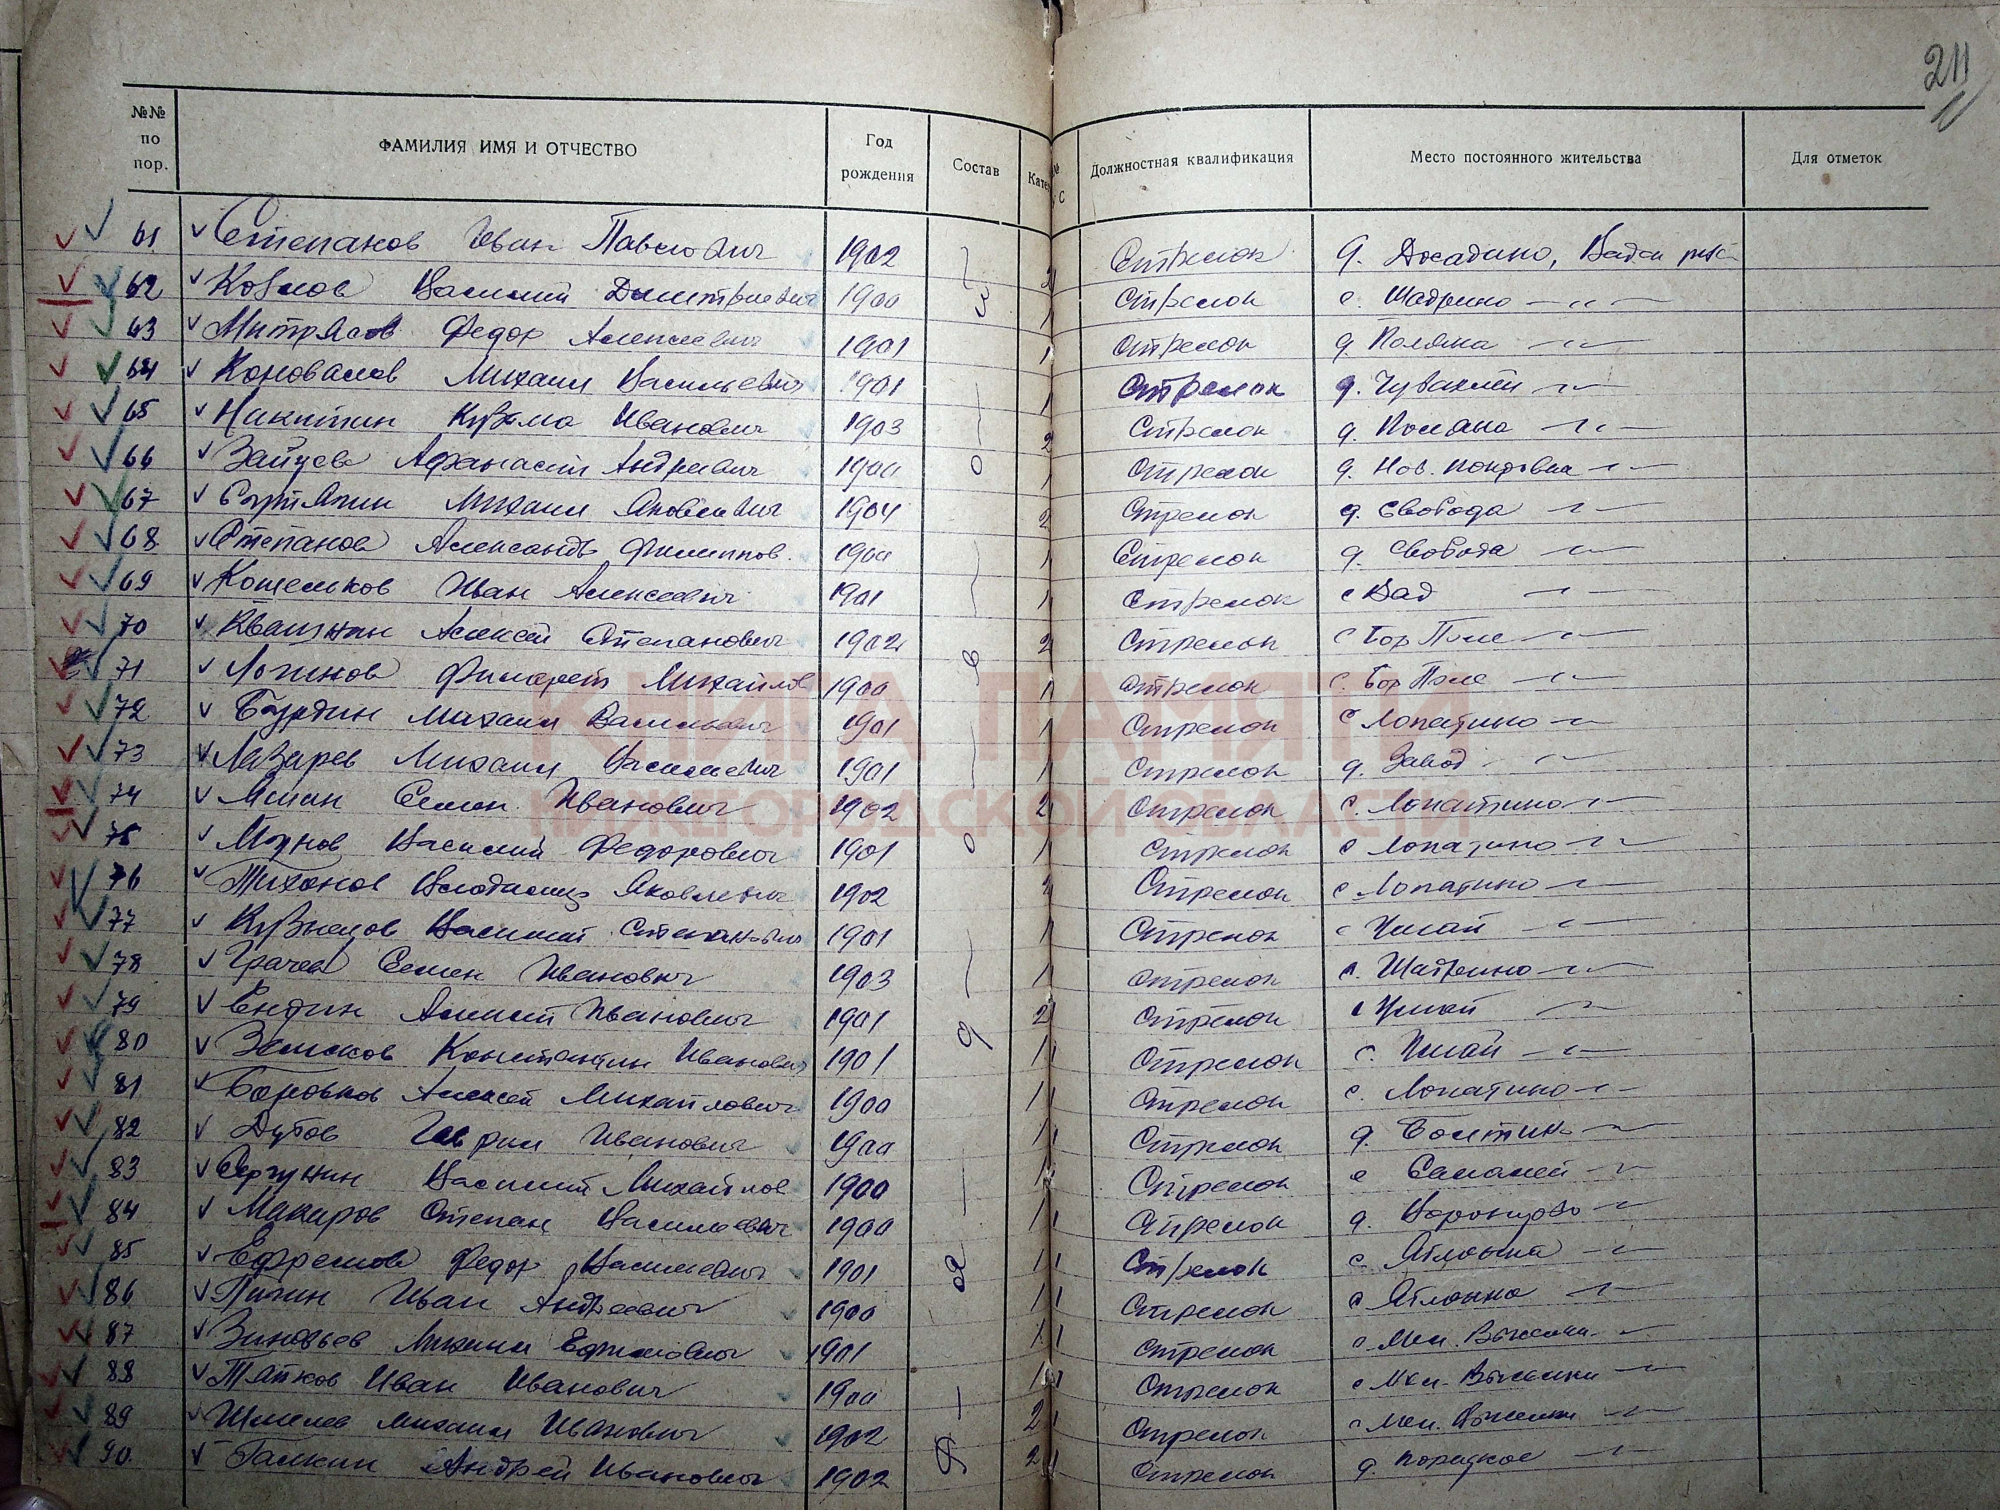 211
№№ по пор. ФАМИЛИЯ ИМЯ И ОТЧЕСТВО Год рождения Состав Кате Должностная квалификация Место постоянного жительства Для отметок
61 Степанов Иван Павлович 1902 Стрелок д. Досадино, Вадск
62 Козлов Василий Дмитриевич 1900 1 Стрелок с. Шадрино —〃—
63 Митрясов Федор Алексеевич 1901 1 Стрелок д. Поляна —〃—
64 Коновалов Михаил Васильевич 1901 1 Стрелок д. —〃—
65 Никитин Кузьма Иванович 1903 2 Стрелок д. Поляна —〃—
66 Зайцев Афанасий Андреевич 1900 1 Стрелок д. Нов. —〃—
67 Михаил Яковлевич 1904 2 Стрелок д. Свобода —〃—
68 Степанов Александр Филиппов. 1900 1 Стрелок д. Свобода —〃—
69 Кошельков Иван Алексеевич 1901 1 Стрелок с Вад —〃—
70 Квашнин Алексей Степанович 1902 2 Стрелок с Бор Поле —〃—
71 Логинов Филарет Михайлов 1900 1 Стрелок с. Бор Поле —〃—
72 Бурдин Михаил Васильевич 1901 1 Стрелок с Лопатино —〃—
73 Лазарев Михаил Васильевич 1901 1 Стрелок д. Завод —〃—
74 Семен Иванович 1902 2 Стрелок с. Лопатино —〃—
75 Василий Федорович 1901 1 Стрелок с Лопатино —〃—
76 Тихонов Владимир Яковлевич 1902 Стрелок с Лопатино —〃—
77 Кузнецов Василий Степанович 1901 1 Стрелок с —〃—
78 Грачев Семен Иванович 1903 1 Стрелок с. Шадрино —〃—
79 Ендин Алексей Иванович 1901 2 Стрелок с —〃—
80 Земсков Константин Иванович 1901 1 Стрелок с. —〃—
81 Боровков Алексей Михайлович 1900 1 Стрелок с. Лопатино —〃—
82 Дубов Гаврил Иванович 1900 1 Стрелок д. —〃—
83 Сергунин Василий Михайлов 1900 1 Стрелок с —〃—
84 Макаров Степан Васильевич 1900 1 Стрелок д. Воронцово —〃—
85 Ефремов Федор Васильевич 1901 1 Стрелок с —〃—
86 Пигин Иван Андреевич 1900 1 Стрелок с —〃—
87 Зиновьев Михаил Ефимович 1901 1 Стрелок с —〃—
88 Иван Иванович 1900 1 Стрелок с —〃—
89 Шмелев Михаил Иванович 1902 2 Стрелок с —〃—
90. Галкин Андрей Иванович 1902 2 Стрелок д. —〃—
КНИГА ПАМЯТИ
НИЖЕГОРОДСКОЙ ОБЛАСТИ